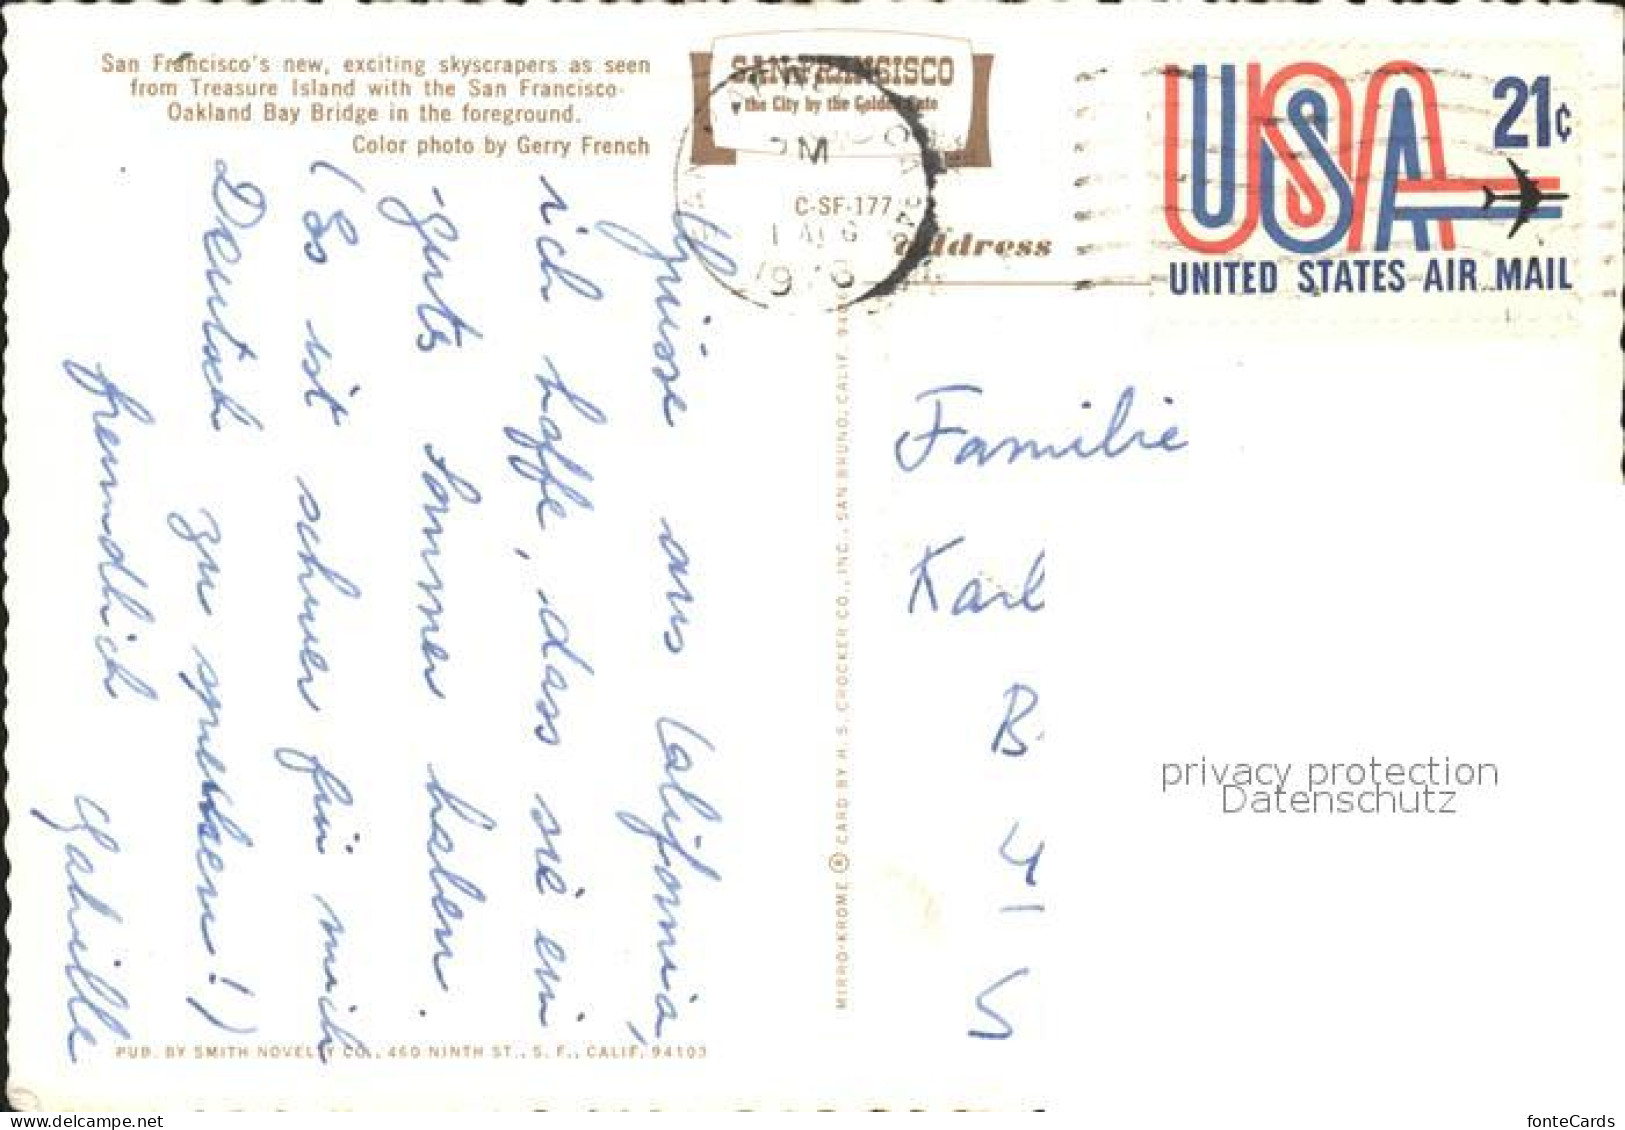 San Francisco's new, exciting skyscrapers as seen
from Treasure Island with the San Francisco-
Oakland Bay Bridge in the foreground.
Color photo by Gerry French
SAN FRANSISCO
the City by the Golden Gate
PM
C-SF-177
1 AUG
Address
USA
21c
UNITED STATES AIR MAIL
Grüsse aus California,
ich hoffe, dass sie ein
guts Sommer haben.
(Es ist schwer für mich
Deutsch zu sprechen!)
freundlich Gabrille
Familie
Karl
B
41
MIRRO-KROME ® CARD BY H. S. CROCKER CO., INC., SAN BRUNO, CALIF. 940
PUB. BY SMITH NOVELTY CO., 460 NINTH ST., S. F., CALIF. 94103
privacy protection
Datenschutz
fonteCards